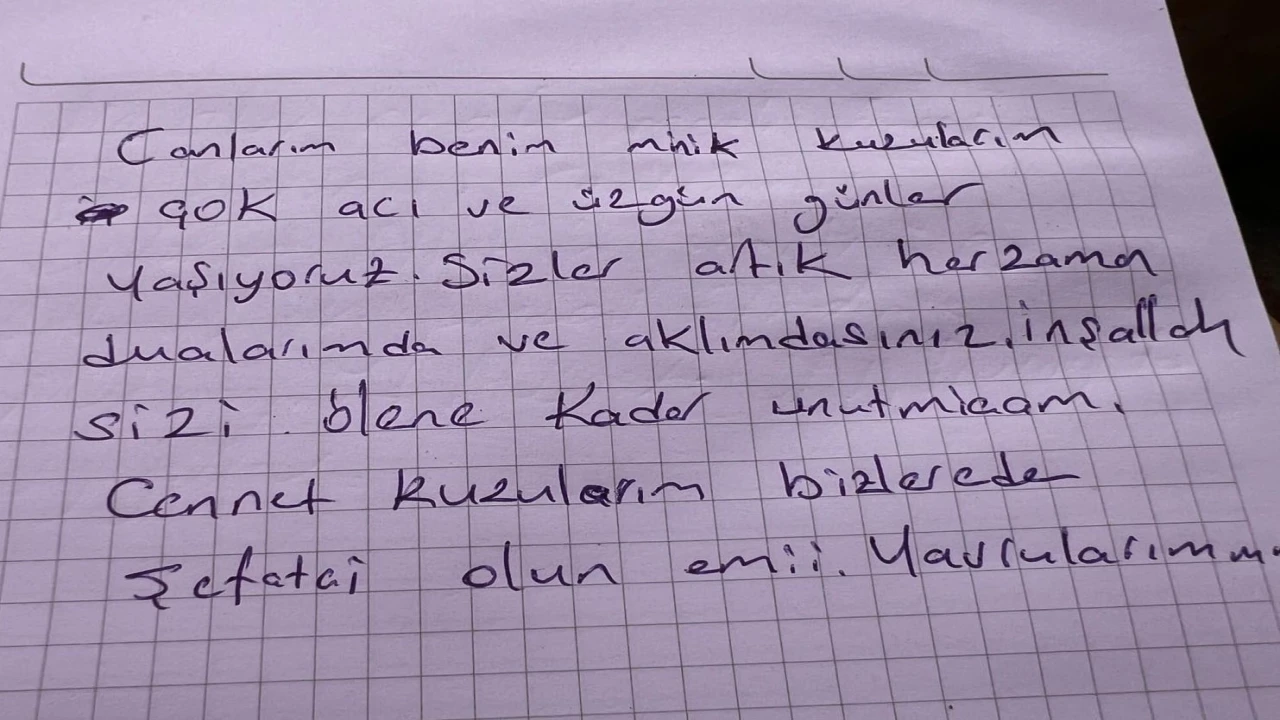 Canlarım benim minik kuzularım
çok acı ve üzgün günler
yaşıyoruz. Sizler artık herzaman
dualarımda ve aklımdasınız, inşallah
sizi ölene kadar unutmicam.
Cennet kuzularım bizlerede
şefatci olun emii. Yavrularımm